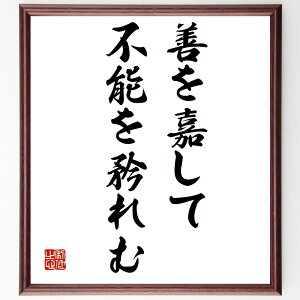 善を嘉して
不能を矜れむ